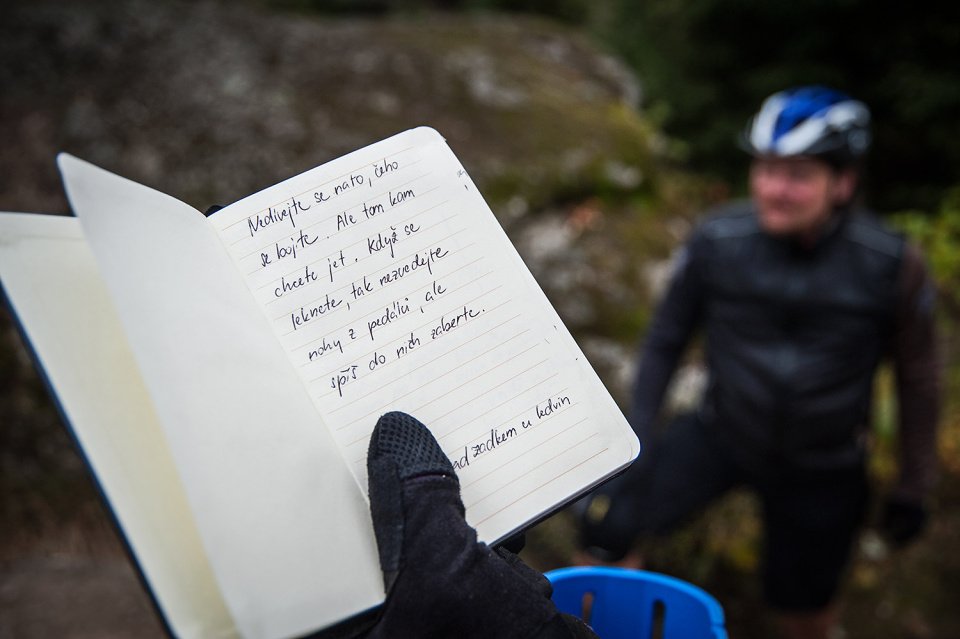 Nedivejte se nato, čeho
se bojíte. Ale tam kam
chcete jet. Když se
leknete, tak nezvedejte
nohy z pedálů, ale
spíš do nich zaberte.
zadkem u